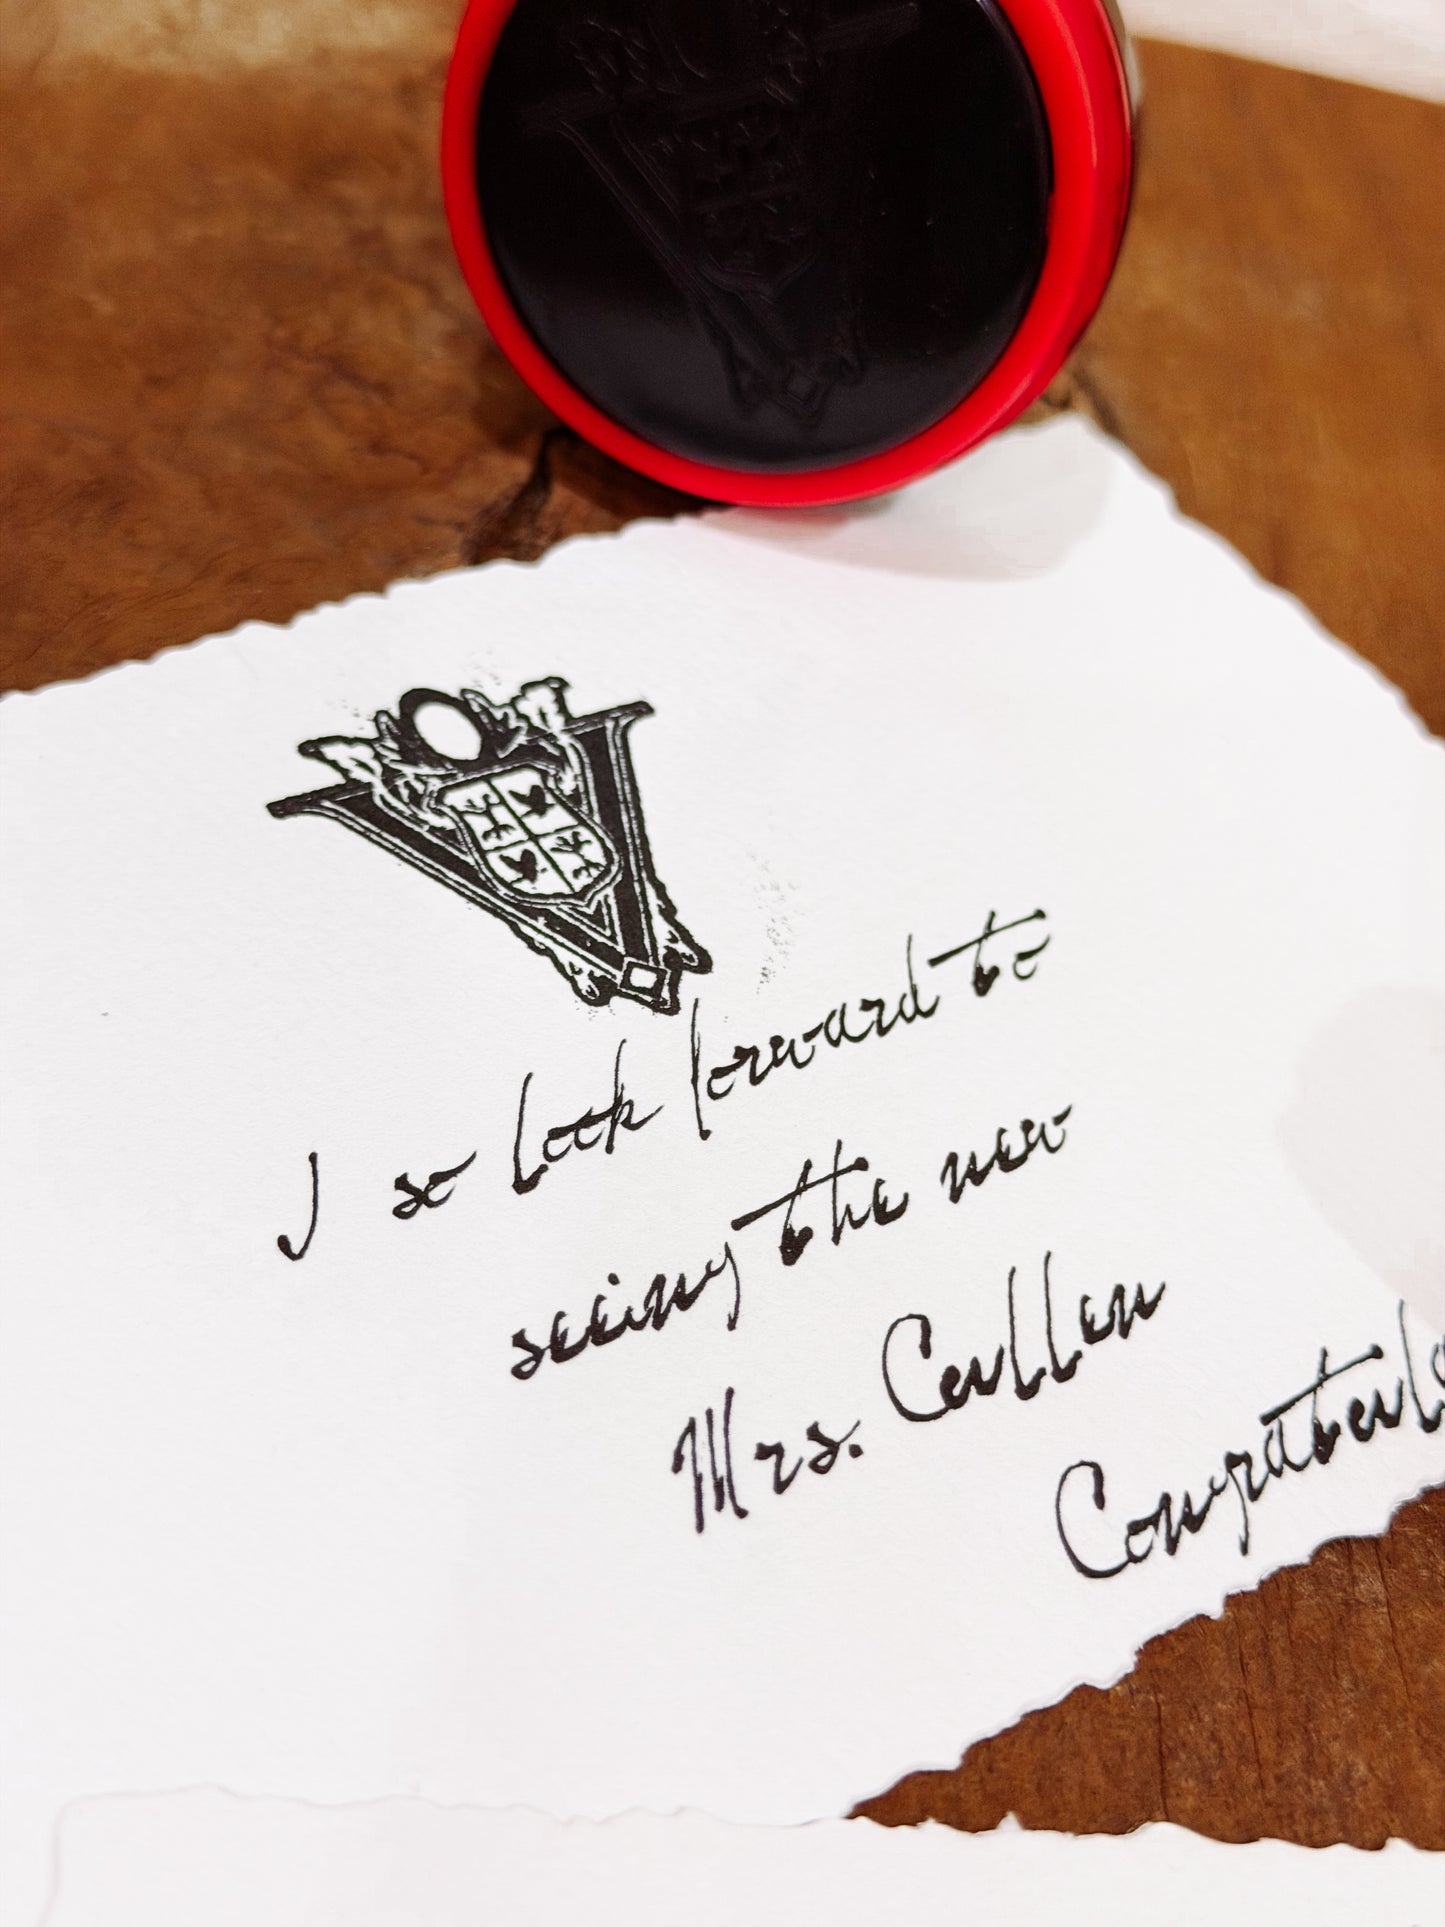 I so look forward to
seeing the new
Mrs. Cullen